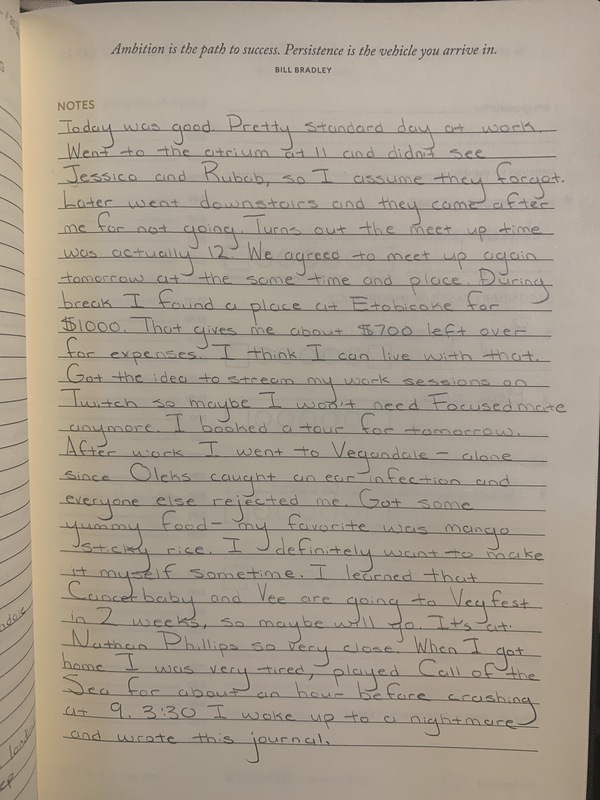 Ambition is the path to success. Persistence is the vehicle you arrive in.
BILL BRADLEY
NOTES
Today was good. Pretty standard day at work.
Went to the atrium at 11 and didn't see
Jessica and Rubab, so I assume they forgot.
Later went downstairs and they came after
me for not going. Turns out the meet up time
was actually 12. We agreed to meet up again
tomorrow at the same time and place. During
break I found a place at Etobicoke for
$1000. That gives me about $700 left over
for expenses. I think I can live with that.
Got the idea to stream my work sessions on
Twitch so maybe I won't need Focusedmate
anymore. I booked a tour for tomorrow.
After work I went to Vegandale - alone
since Oleks caught an ear infection and
everyone else rejected me. Got some
yummy food - my favorite was mango
sticky rice. I definitely want to make
it myself sometime. I learned that
Cancerbaby and Vee are going to Vegfest
in 2 weeks, so maybe will go. It's at
Nathan Phillips so very close. When I got
home I was very tired, played Call of the
Sea for about an hour before crashing
at 9. 3:30 I woke up to a nightmare
and wrote this journal.